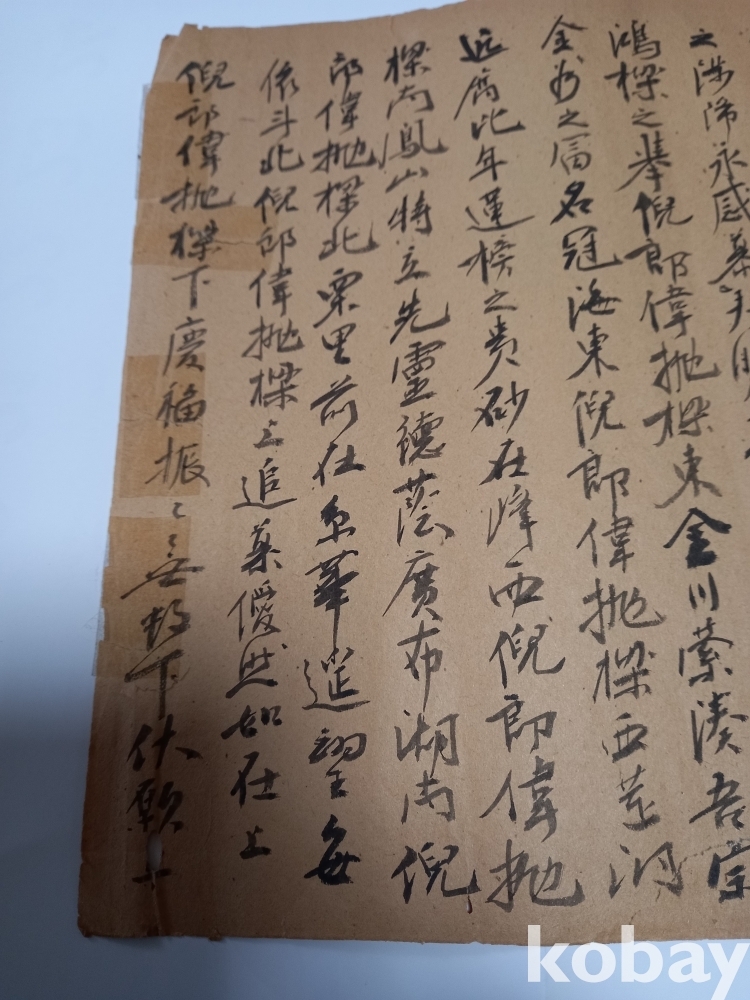 之涕永感慕
鴻樑之擧倪郎偉抛樑東金川縈湊吾宗
金之富名冠海東倪郎偉抛樑西洞
近此年蓮榜之貴砂在峰西倪郎偉抛
樑南鳳山特立先靈德蔭廣布湖南倪
郎偉抛樑北栗里前在京華遙望每
依斗北倪郎偉抛樑上追慕僾然如在上
倪郎偉抛樑下慶福振〻無下伏願上
kobay